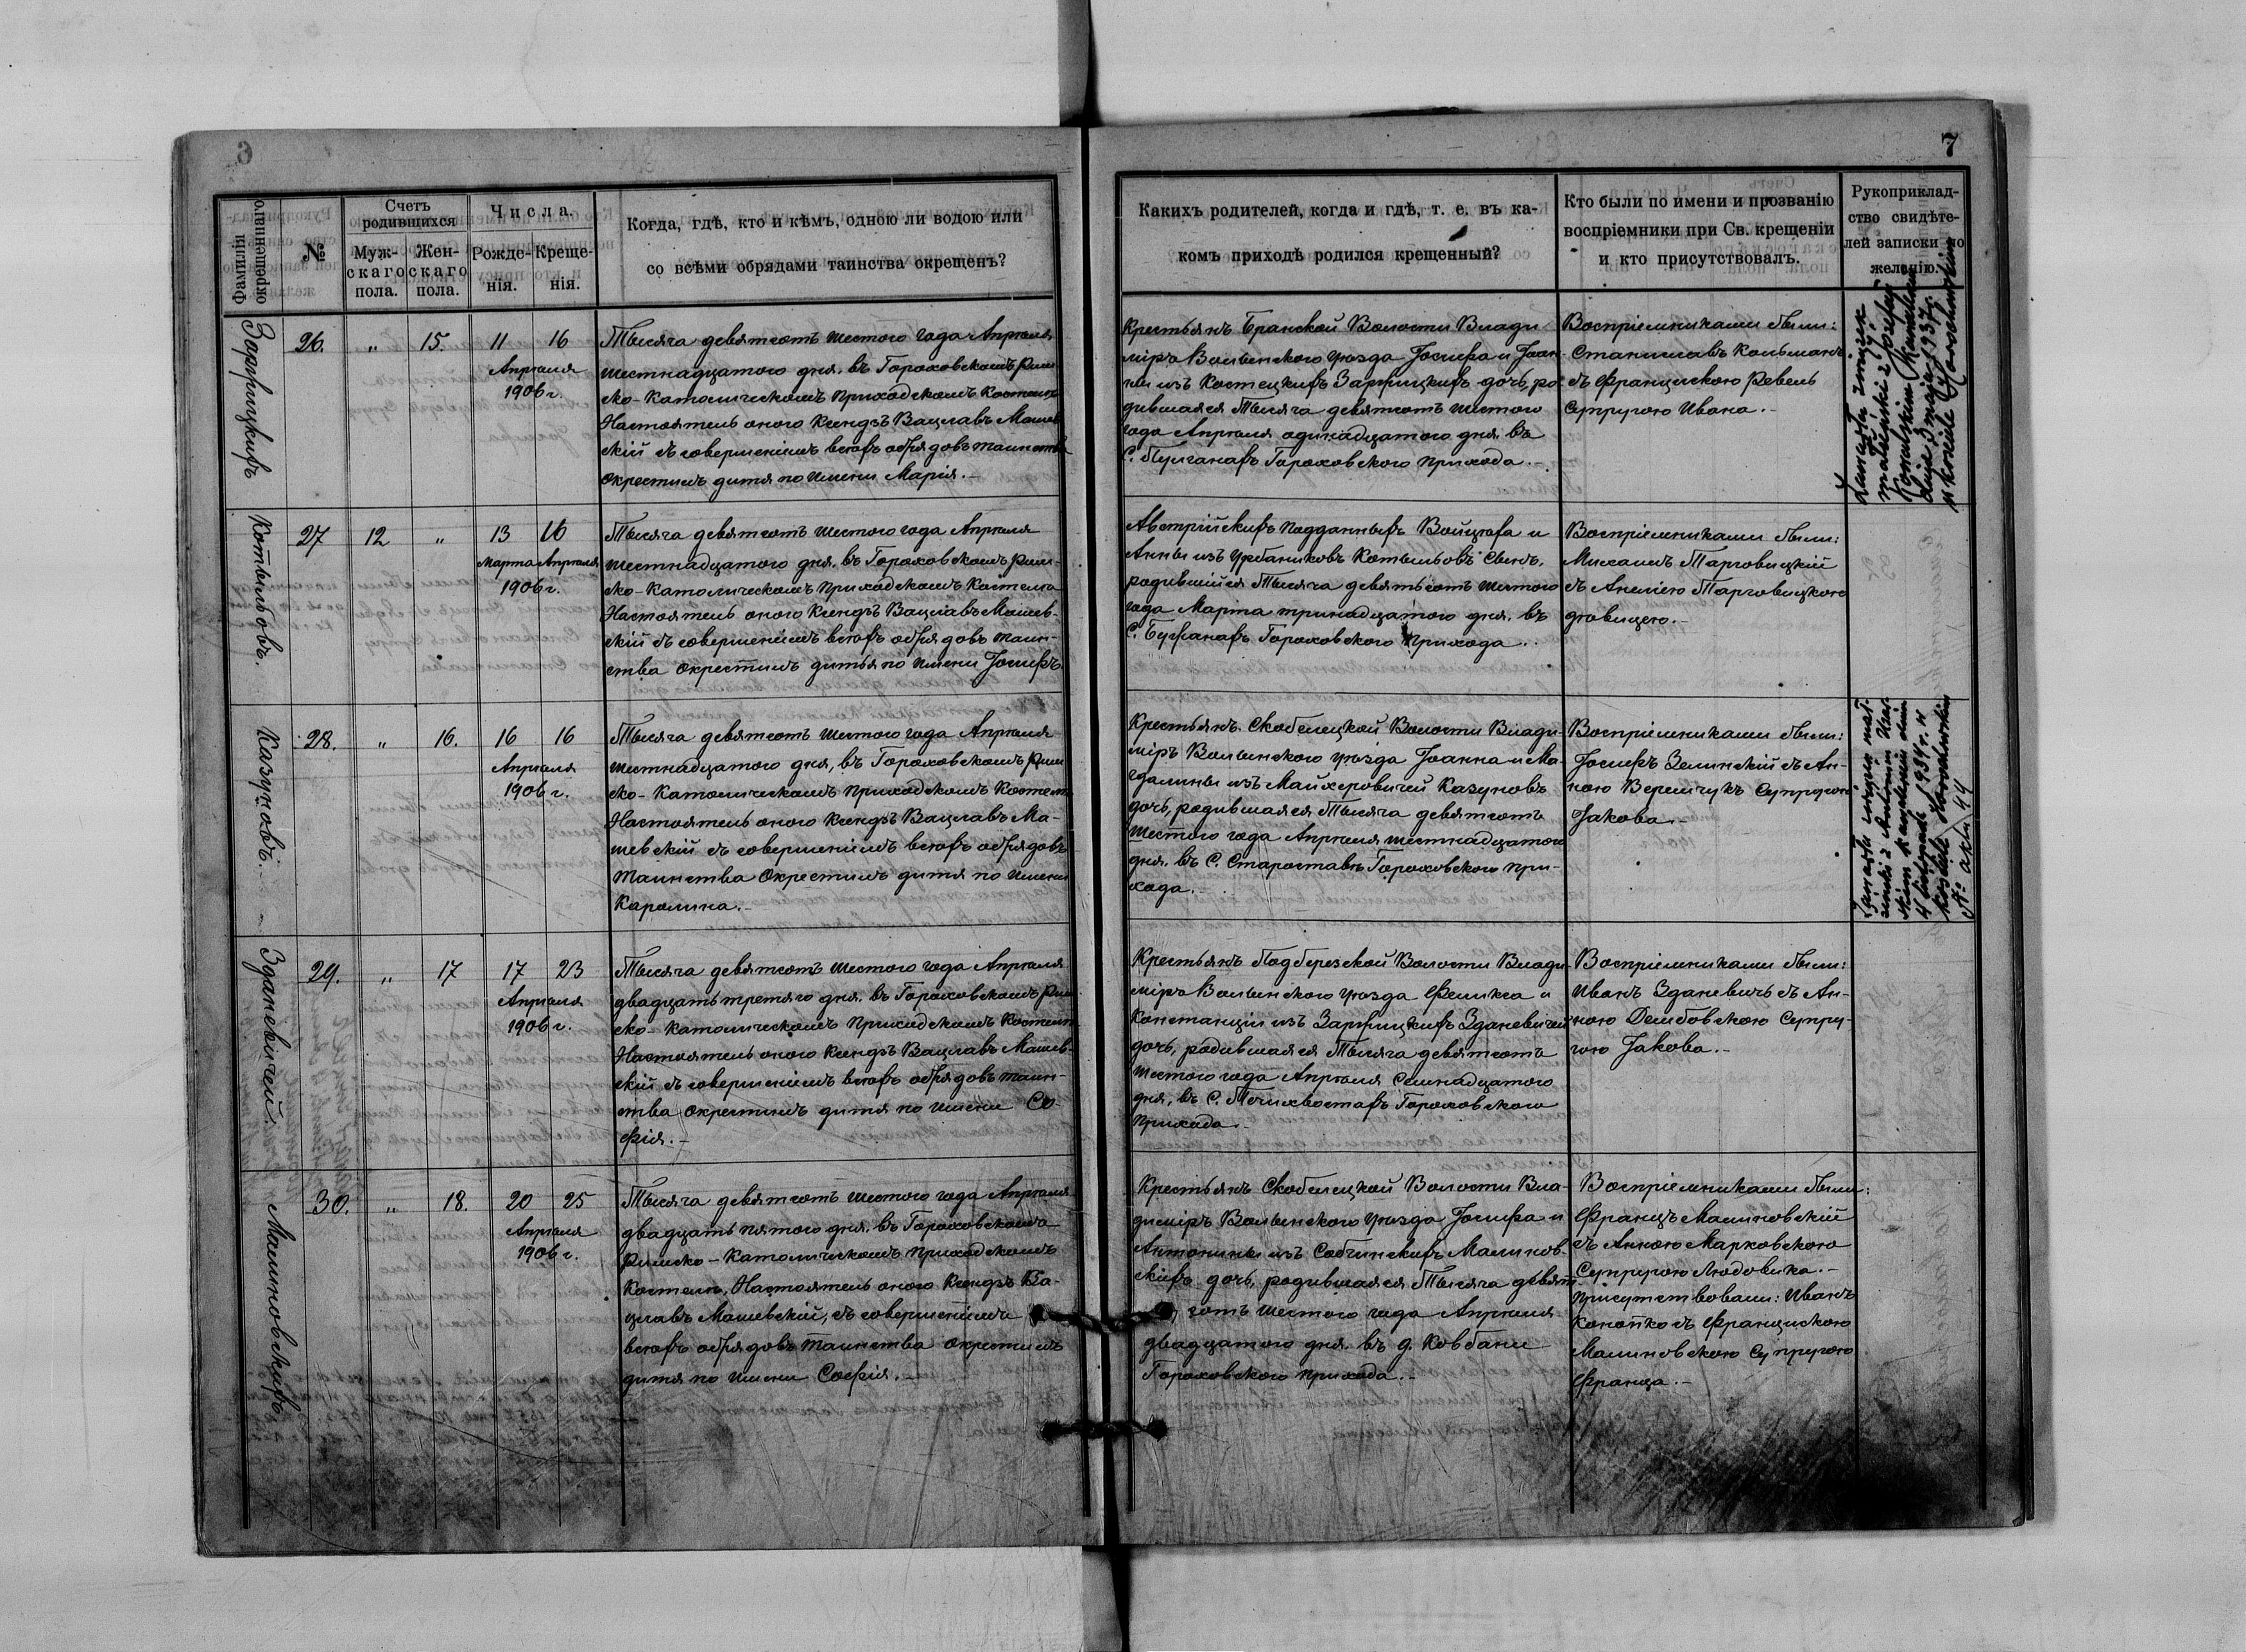 7
Фамиліи окрещеннаго.
№
Счетъ родившихся
Муж-скаго пола.
Жен-скаго пола.
Числа.
Рожде-нія.
Креще-нія.
Когда, гдѣ, кто и кѣмъ, одною ли водою или
со всѣми обрядами таинства окрещенъ?
Какихъ родителей, когда и гдѣ, т. е. въ ка-
комъ приходѣ родился крещенный?
Кто были по имени и прозванію
воспріемники при Св. крещеніи
и кто присутствовалъ.
Рукоприклад-
ство свидѣте-
лей записки по
желанію.
Зарфицкихъ
26. " 15. 11 16
Апрѣля
1906 г.
Тысяча девятсотъ шестого года Апрѣля
шестнадцатого дня, въ Гороховскомъ Рим
ско-Католическомъ Приходскомъ Костелѣ
Настоятель оного Ксендзъ Вацлавъ Машев
скій съ совершеніемъ всѣхъ обрядовъ таинства
окрестилъ дитя по имени Марія.-
Крестьянъ Бранской Волости Влади
міръ Волынского уѣзда Іосифа и Іоан
ны изъ Костецкихъ Зарфицкихъ дочь, ро-
дившаяся Тысяча девятсотъ шестого
года Апрѣля одинадцатого дня, въ
С. Пулганахъ Гороховского прихода.-
Воспріемниками были:
Станиславъ Кольманъ
съ Францискою Ревель
Супругою Ивана.-
27 12 " 13 16
Котыльовъ.
Марта Апрѣля
1906 г.
Тысяча девятсотъ шестого года Апрѣля
шестнадцатого дня, въ Гороховскомъ Рим-
ско-Католическомъ Приходскомъ Костелѣ
Настоятель оного Ксендзъ Вацлавъ Машев-
скій съ совершеніемъ всѣхъ обрядовъ таин-
ства окрестилъ дитя по имени Іосифъ.
Австрійскихъ подданныхъ Войцѣха и
Анны изъ Урбаниковъ Котыльовъ сынъ,
родившійся Тысяча девятьсотъ шестого
года Марта тринадцатого дня, въ
С. Бужанахъ Гороховского прихода.
Воспріемниками были:
Михаилъ Тарговицкій
съ Анелією Тарговицкою
дѣвицею.-
Казуновъ.
28. " 16. 16 16
Апрѣля
1906 г.
Тысяча девятсотъ шестого года Апрѣля
шестнадцатого дня, въ Гороховскомъ Рим
ско-Католическомъ Приходскомъ Костелѣ
Настоятель оного Ксендзъ Вацлавъ Ма-
шевскій съ совершеніемъ всѣхъ обрядовъ
Таинства окрестилъ дитя по имени
Каролина.-
Крестьянъ Скобелецкой Волости Влади
міръ Волынского уѣзда Іоанна и Ма-
гдалины изъ Майхеровичей Казуновъ
дочь, родившаяся Тысяча девятсотъ
шестого года Апрѣля шестнадцатого
дня, въ С. Староставѣ Гороховского при-
хода.-
Воспріемниками были:
Іосифъ Зелинскій съ Ан-
ною Верещукъ Супругою
Іакова.-
Зданевичей.
29. " 17 17 23
Апрѣля
1906 г.
Тысяча девятсотъ шестого года Апрѣля
двадцать третяго дня, въ Гороховскомъ Рим
ско-Католическомъ Приходскомъ Костелѣ
Настоятель оного Ксендзъ Вацлавъ Машев-
скій съ совершеніемъ всѣхъ обрядовъ таин-
ства окрестилъ дитя по имени Со-
фія.-
Крестьянъ Подберезской Волости Влади
міръ Волынского уѣзда Феликса и
Констанціи изъ Зарфицкихъ Зданевичей
дочь, родившаяся Тысяча девятсотъ
шестого года Апрѣля семнадцатого
дня, въ С. Печихвостахъ Гороховского
прихода.-
Воспріемниками были:
Иванъ Зданевичъ съ Ан-
ною Дембовскою Супру-
гою Іакова.-
Малиновскихъ.
30. " 18. 20 25
Апрѣля
1906 г.
Тысяча девятсотъ шестого года Апрѣля
двадцать пятого дня, въ Гороховскомъ
Римско-Католическомъ Приходскомъ
Костелѣ, Настоятель оного Ксендзъ Ва-
цлавъ Машевскій, съ совершеніемъ
всѣхъ обрядовъ таинства окрестилъ
дитя по имени Софія.-
Крестьянъ Скобелецкой Волости Вла-
диміръ Волынского уѣзда Іосифа и
Антонины изъ Собчинскихъ Малинов-
скихъ дочь, родившаяся Тысяча девят-
сотъ шестого года Апрѣля
двадцатого дня, въ д. Ковбани
Гороховского прихода.-
Воспріемниками были:
Францъ Малиновскій
съ Анною Марковскою
Супругою Людовика.-
Присутствовали: Иванъ
Конопко съ Францискою
Малиновскою Супругою
Франца.-